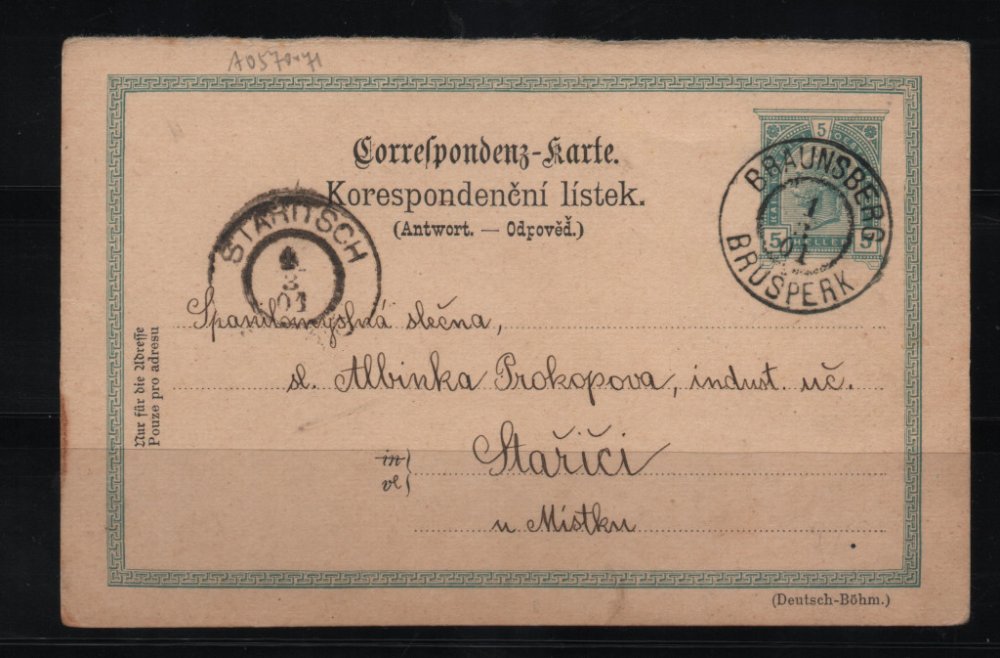 A0570-71
Correspondenz-Karte.
Korespondenční lístek.
(Antwort. — Odpověď.)
5
5 HELLER 5
BRAUNSBERG
1
3
01
BRUŠPERK
STARITSCH
3
01
Spanilomyslná slečna,
sl. Albinka Prokopova, indust. uč.
in
ve
Stařiči
u Místku
Nur für die Adresse
Pouze pro adresu
(Deutsch-Böhm.)